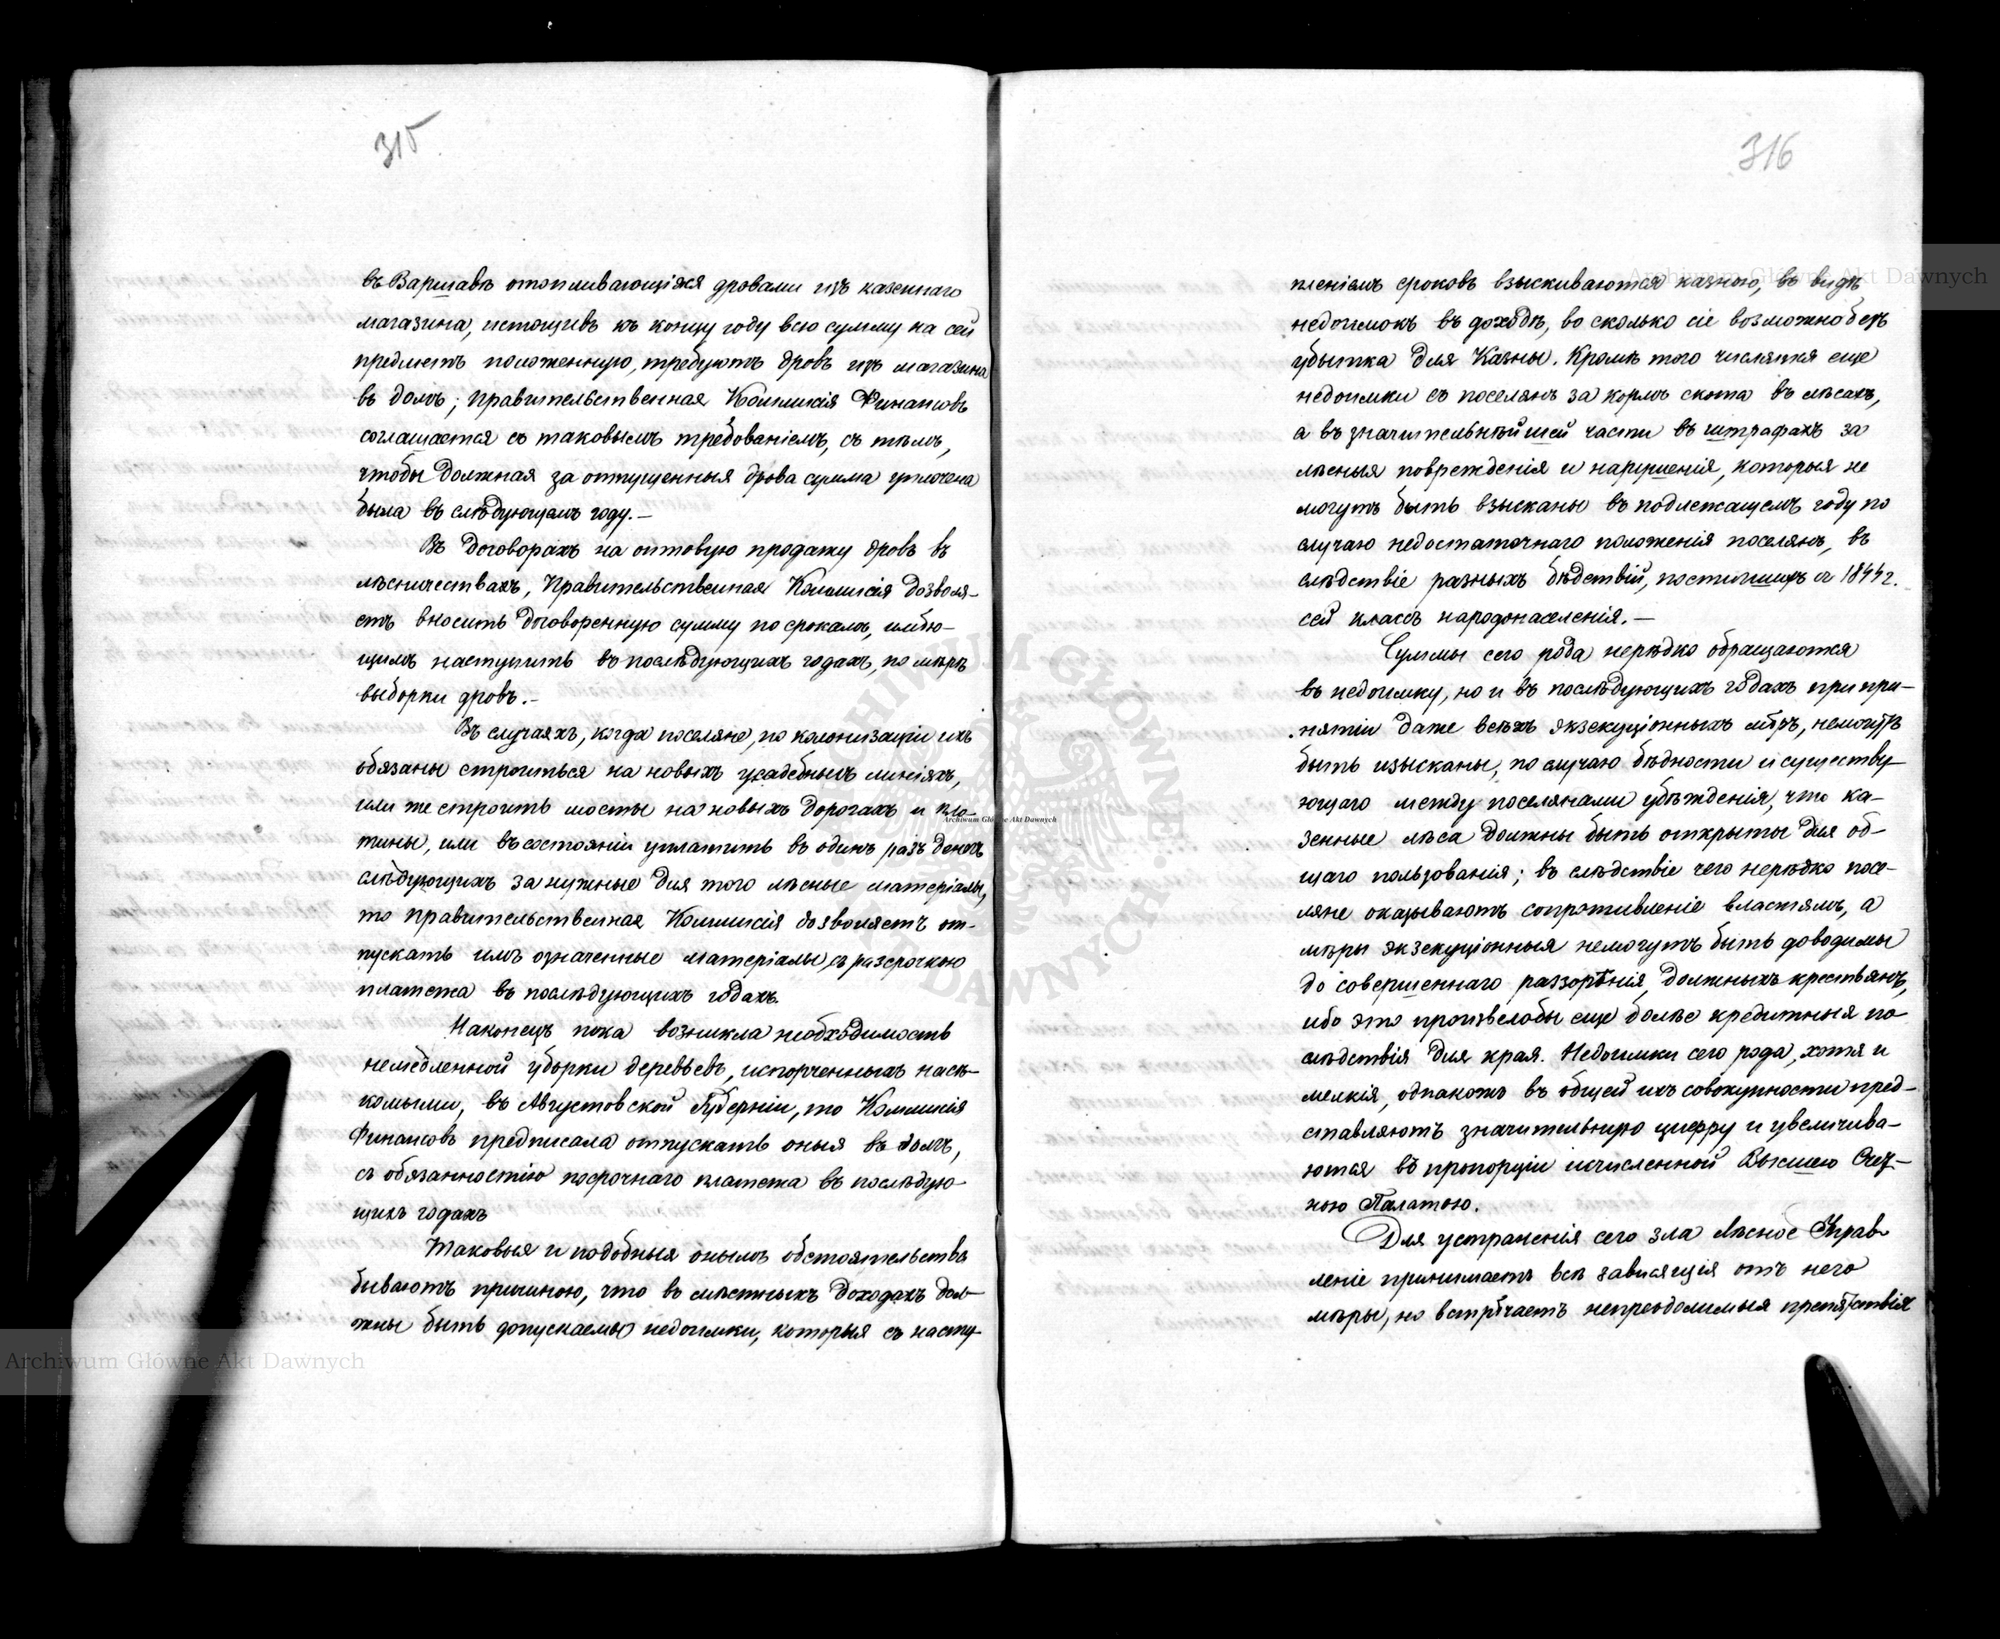 315
въ Варшавѣ отопливающіяся дровами изъ казеннаго
магазина, истощивъ къ концу году всю сумму на сей
предметъ положенную, требуютъ дровъ изъ магазина
въ долгъ; Правительственная Коммисія Финансовъ
соглашается съ таковымъ требованіемъ, съ тѣмъ,
чтобы должная за отпущенныя дрова сумма уплочена
была въ слѣдующемъ году.—
Въ договорахъ на оптовую продажу дровъ въ
лѣсничествахъ, Правительственная Коммисія дозволя-
етъ вносить договоренную сумму по срокамъ, имѣю-
щимъ наступить въ послѣдующихъ годахъ, по мѣрѣ
выборки дровъ.—
Въ случаяхъ, когда поселяне, по колонизаціи ихъ
обязаны строиться на новыхъ усадебныхъ линіяхъ,
или же строить мосты на новыхъ дорогахъ и пло-
тины, или въ состояніи уплатить въ одинъ разъ денегъ
слѣдующихъ за нужные для того лѣсные матеріалы,
то Правительственная Коммисія дозволяетъ от-
пускать имъ означенные матеріалы, съ разсрочкою
платежа въ послѣдующихъ годахъ.
Наконецъ пока возникла необходимость
немедленной уборки деревьевъ, испорченныхъ насѣ-
комыми, въ Августовской Губерніи, то Коммисія
Финансовъ предписала отпускать оныя въ долгъ,
съ обязанностію посрочнаго платежа въ послѣдую-
щихъ годахъ
Таковыя и подобныя онымъ обстоятельства
бываютъ причиною, что въ лѣсныхъ доходахъ дол-
жны быть допускаемы недоимки, которыя съ насту-
316
пленіемъ сроковъ взыскиваются казною, въ видѣ
недоимокъ въ доходѣ, во сколько сіе возможно безъ
убытка для Казны. Кромѣ того числятся еще
недоимки съ поселянъ за кормъ скота въ лѣсахъ,
а въ значительнѣйшей части въ штрафахъ за
лѣсныя поврежденія и нарушенія, которыя не
могутъ быть взысканы въ подлежащемъ году по
случаю недостаточнаго положенія поселянъ, въ
слѣдствіе разныхъ бѣдствій, постигшихъ съ 1844 г.
сей классъ народонаселенія.—
Суммы сего рода нерѣдко обращаются
въ недоимку, но и въ послѣдующихъ годахъ при при-
нятіи даже всѣхъ экзекуціонныхъ мѣръ, немогутъ
быть изысканы, по случаю бѣдности и существу-
ющаго между поселянами убѣжденія, что ка-
зенные лѣса должны быть открыты для об-
щаго пользованія; въ слѣдствіе чего нерѣдко посе-
ляне оказываютъ сопротивленіе властямъ, а
мѣры экзекуціонныя немогутъ быть доводимы
до совершеннаго раззорѣнія, должныхъ крестьянъ,
ибо это произвелобы еще болѣе вредитныя по-
слѣдствія для края. Недоимки сего рода, хотя и
мелкія, однакожъ въ общей ихъ совокупности пред-
ставляютъ значительную цифру и увеличива-
ются въ пропорціи исчисленной Высшею Счет-
ною Палатою.
Для устраненія сего зла Лѣсное Управ-
леніе принимаетъ всѣ зависящія отъ него
мѣры, но встрѣчаетъ непреодолимыя препятствія
Archiwum Główne Akt Dawnych
Archiwum Główne Akt Dawnych
Archiwum Główne Akt Dawnych